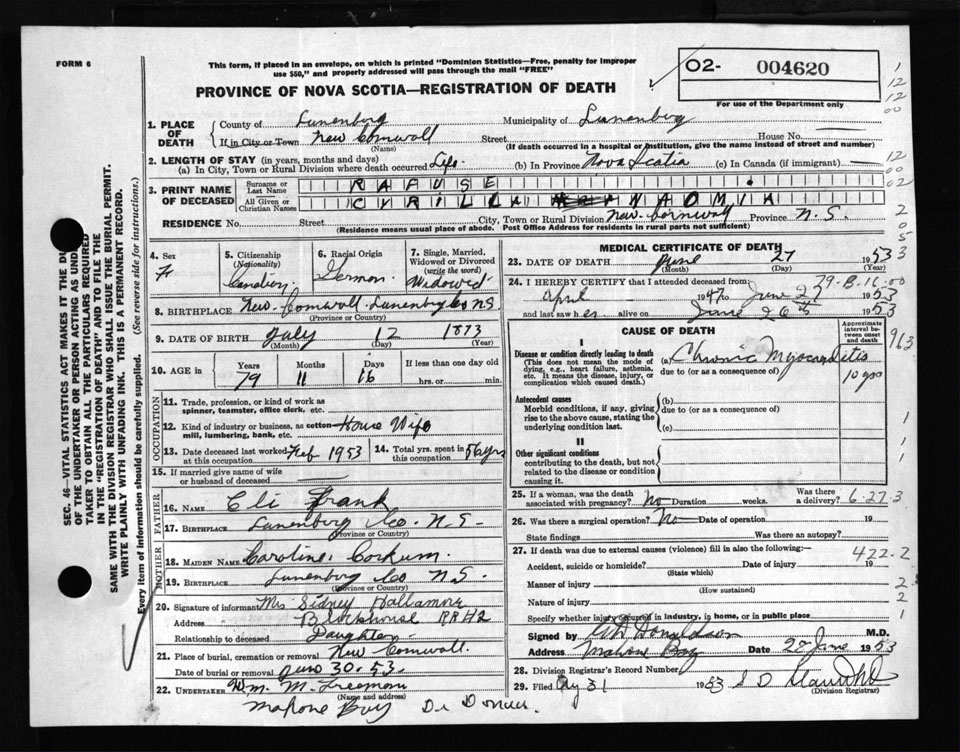 FORM 6
This form, if placed in an envelope, on which is printed "Dominion Statistics—Free, penalty for improper
use $50," and properly addressed will pass through the mail "FREE"
PROVINCE OF NOVA SCOTIA—REGISTRATION OF DEATH
O2- 004620
For use of the Department only
1. PLACE OF DEATH
County of Lunenburg Municipality of Lunenburg
If in City or Town New Cornwall Street House No.
(Name) (If death occurred in a hospital or institution, give the name instead of street and number)
2. LENGTH OF STAY (in years, months and days)
(a) In City, Town or Rural Division where death occurred Life (b) In Province Nova Scotia (c) In Canada (if immigrant)
3. PRINT NAME OF DECEASED
Surname or Last Name RAFUSE
All Given or Christian Names CYRILLA NAOMIA
RESIDENCE No. Street City, Town or Rural Division New Cornwall Province N.S.
(Residence means usual place of abode. Post Office Address for residents in rural parts not sufficient)
4. Sex F
5. Citizenship (Nationality) Canadian
6. Racial Origin German
7. Single, Married, Widowed or Divorced (write the word) Widowed
8. BIRTHPLACE New Cornwall Lunenburg Co N.S
(Province or Country)
9. DATE OF BIRTH July 12 1873
(Month) (Day) (Year)
10. AGE in Years Months Days If less than one day old
79 11 16 hrs. or min.
OCCUPATION
11. Trade, profession, or kind of work as
spinner, teamster, office clerk, etc.
12. Kind of industry or business, as cotton-
mill, lumbering, bank, etc. House Wife
13. Date deceased last worked at this occupation Feb 1953 14. Total yrs. spent in this occupation 56 yrs
15. If married give name of wife
or husband of deceased
FATHER
16. NAME Eli Frank
17. BIRTHPLACE Lunenburg Co. N.S.
(Province or Country)
MOTHER
18. MAIDEN NAME Caroline Corkum
19. BIRTHPLACE Lunenburg Co N.S.
(Province or Country)
20. Signature of informant Mrs Sidney Hallamore
Address Blockhouse RR#2
Relationship to deceased Daughter
21. Place of burial, cremation or removal New Cornwall.
Date of burial or removal June 30. 53.
22. UNDERTAKER Wm. M. Freeman
(Name and address)
Mahone Bay Dr
MEDICAL CERTIFICATE OF DEATH
23. DATE OF DEATH June 27 1953
(Month) (Day) (Year)
24. I HEREBY CERTIFY that I attended deceased from 79-B-16-00
April 1947 to June 27 1953
and last saw her alive on June 26th 1953
CAUSE OF DEATH
Approximate interval between onset and death
963
I
Disease or condition directly leading to death
(This does not mean the mode of
dying, e.g., heart failure, asthenia,
etc. It means the disease, injury, or
complication which caused death.)
(a) Chronic Myocarditis
due to (or as a consequence of) 10 yrs
Antecedent causes
Morbid conditions, if any, giving
rise to the above cause, stating the
underlying condition last.
(b)
due to (or as a consequence of)
(c)
II
Other significant conditions
contributing to the death, but not
related to the disease or condition
causing it.
25. If a woman, was the death associated with pregnancy? No Duration weeks. Was there a delivery? 6-27-3
26. Was there a surgical operation? No Date of operation 19
State findings Was there an autopsy?
27. If death was due to external causes (violence) fill in also the following:— 422.2
Accident, suicide or homicide? Date of injury 19
(State which)
Manner of injury
(How sustained)
Nature of injury
Specify whether injury occurred in industry, in home, or in public place
Signed by Donaldson M.D.
Address Mahone Bay Date June 1953
28. Division Registrar's Record Number
29. Filed 31 1953 S D
(Division Registrar)
SEC. 46—VITAL STATISTICS ACT MAKES IT THE DUTY
OF THE UNDERTAKER OR PERSON ACTING AS UNDER-
TAKER TO OBTAIN ALL THE PARTICULARS REQUIRED
IN THE "REGISTRATION OF DEATH" AND TO FILE THE
SAME WITH THE DIVISION REGISTRAR WHO SHALL ISSUE THE BURIAL PERMIT.
WRITE PLAINLY WITH UNFADING INK. THIS IS A PERMANENT RECORD.
Every item of information should be carefully supplied. (See reverse side for instructions.)
1
12
12
00
12
00
02
2
0
5
3
1
1
1
2
2
1